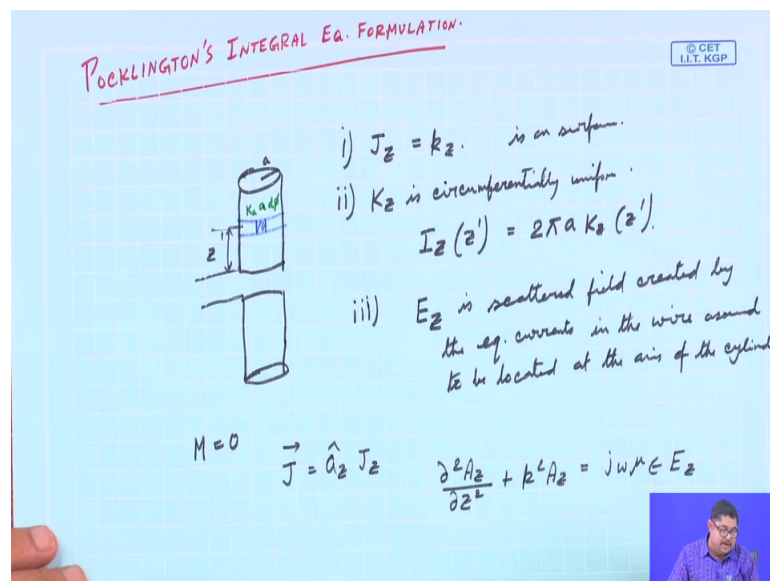 POCKLINGTON'S INTEGRAL EQ. FORMULATION.
© CET
I.I.T. KGP
i) J_z = k_z. is on surface.
ii) K_z is circumferentially uniform.
I_z(z') = 2πa K_z(z').
iii) E_z is scattered field created by
the eq. currents in the wire assumed
to be located at the axis of the cylind
a
z
M = 0
\vec{J} = \hat{a}_z J_z
∂²A_z/∂z² + k²A_z = jωμ∈ E_z